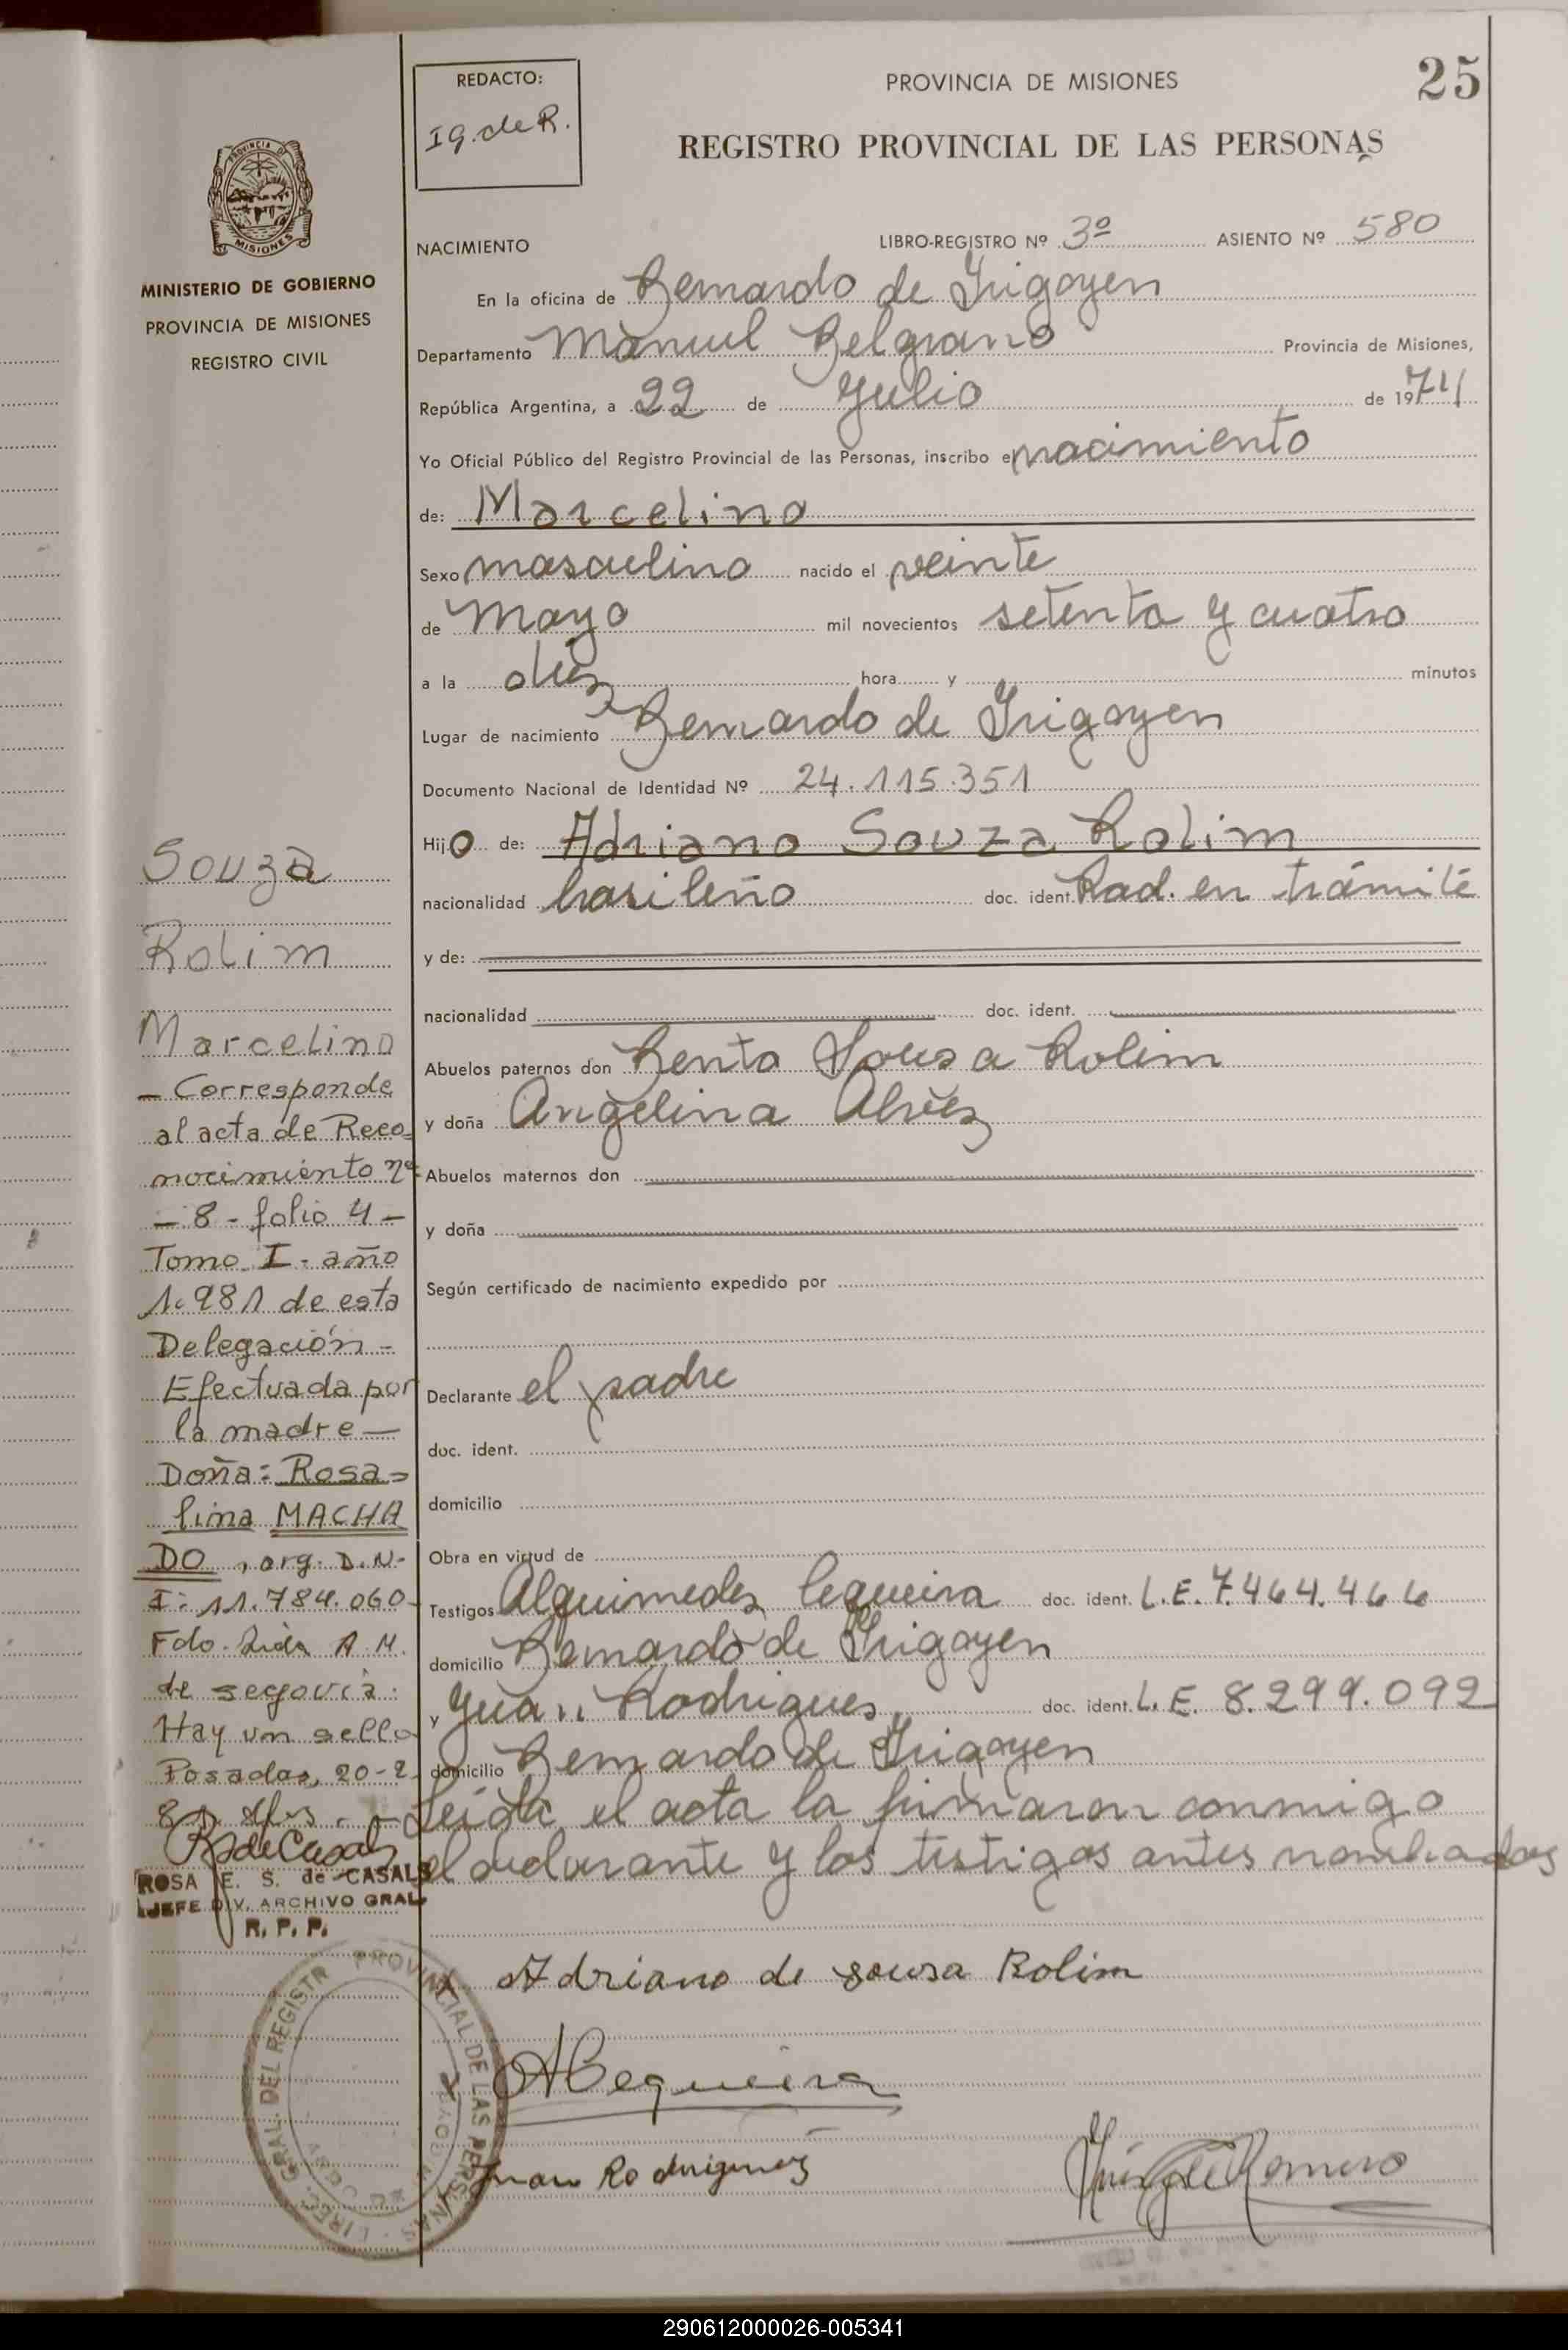 25
REDACTO:
Ig. de R.
PROVINCIA DE MISIONES
REGISTRO PROVINCIAL DE LAS PERSONAS
PROVINCIA DE
MISIONES
MINISTERIO DE GOBIERNO
PROVINCIA DE MISIONES
REGISTRO CIVIL
NACIMIENTO LIBRO-REGISTRO Nº 3º ASIENTO Nº 580
En la oficina de Bernardo de Irigoyen
Departamento Manuel Belgrano Provincia de Misiones,
República Argentina, a 22 de Julio de 1974
Yo Oficial Público del Registro Provincial de las Personas, inscribo el nacimiento
de: Marcelino
Sexo masculino nacido el veinte
de mayo mil novecientos setenta y cuatro
a la diez hora y minutos
Lugar de nacimiento Bernardo de Irigoyen
Documento Nacional de Identidad Nº 24.115.351
Hijo de: Adriano Souza Rolim
nacionalidad brasileño doc. ident. Rad. en trámite
y de:
nacionalidad doc. ident.
Abuelos paternos don Bento Sousa Rolim
y doña Angelina Alvez
Abuelos maternos don
y doña
Según certificado de nacimiento expedido por
Declarante el padre
doc. ident.
domicilio
Obra en virtud de
Testigos Alquimedes Cequeira doc. ident. L.E. 7.464.466
domicilio Bernardo de Irigoyen
y Juan Rodrigues doc. ident. L.E. 8.299.092
domicilio Bernardo de Irigoyen
Leída el acta la firmaron conmigo
el declarante y los testigos antes nombrados
X Adriano de sousa Rolim
ACequeira
Juan Rodrigues
Souza
Rolim
Marcelino
- Corresponde
al acta de Reco=
nocimiento nº
- 8 - folio 4 -
Tomo I - año
1.981 de esta
Delegación -
Efectuada por
la madre -
Doña: Rosa=
lina MACHA
DO, arg. D.N.
I: 11.784.060-
Fdo. A M.
de segovia.
Hay un sello
Posadas, 20-2
81
RdeCasals
ROSA E. S. de CASALS
JEFE DIV. ARCHIVO GRAL
R. P. P.
DIREC. GRAL. DEL REGISTR PROVINCIAL DE LAS PERSONAS
290612000026-005341